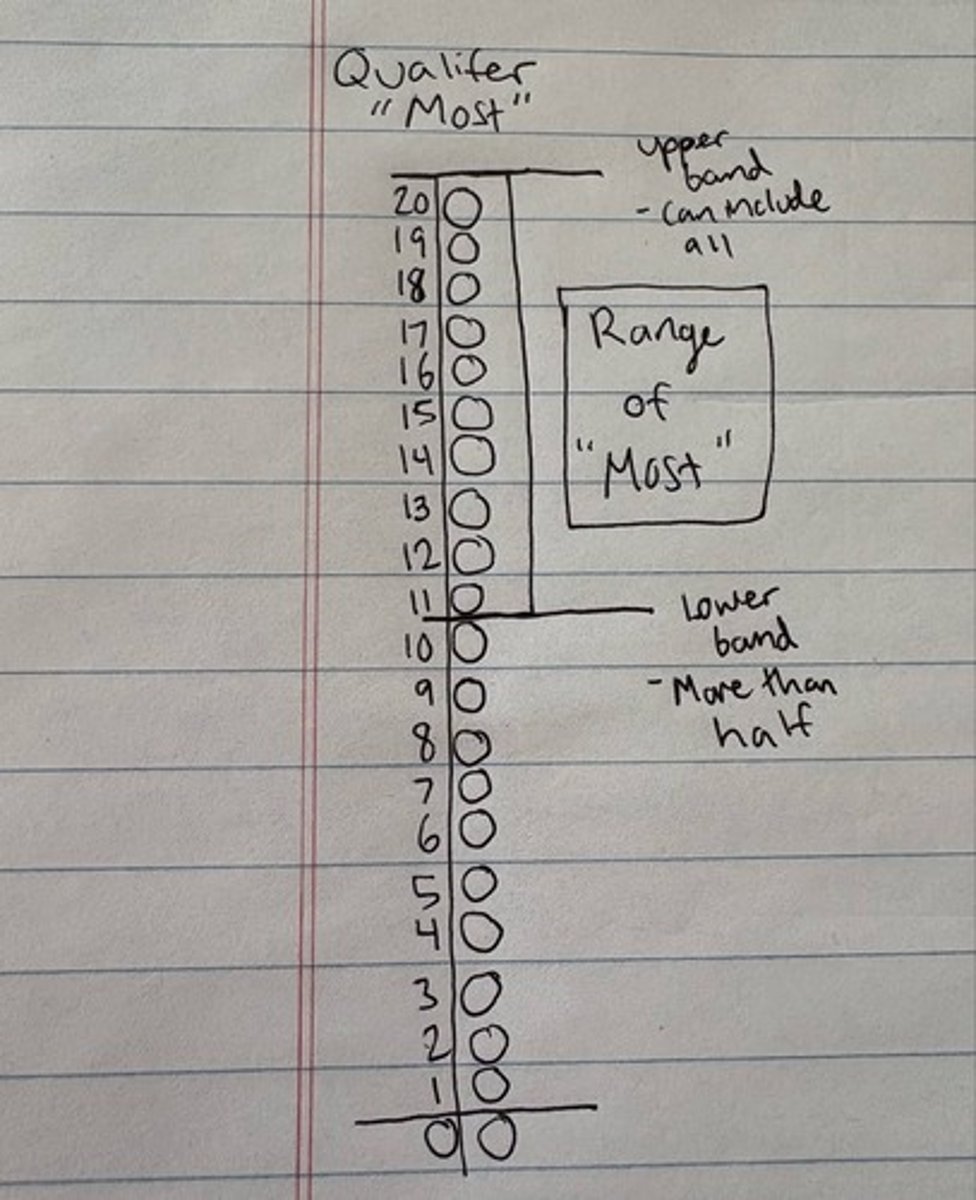 Qualifer
"Most"
upper
band
- Can include
all
20
19
18
17
16
15
14
13
12
11
10
9
8
7
6
5
4
3
2
1
0
Range
of
"Most"
Lower
band
- More than
half